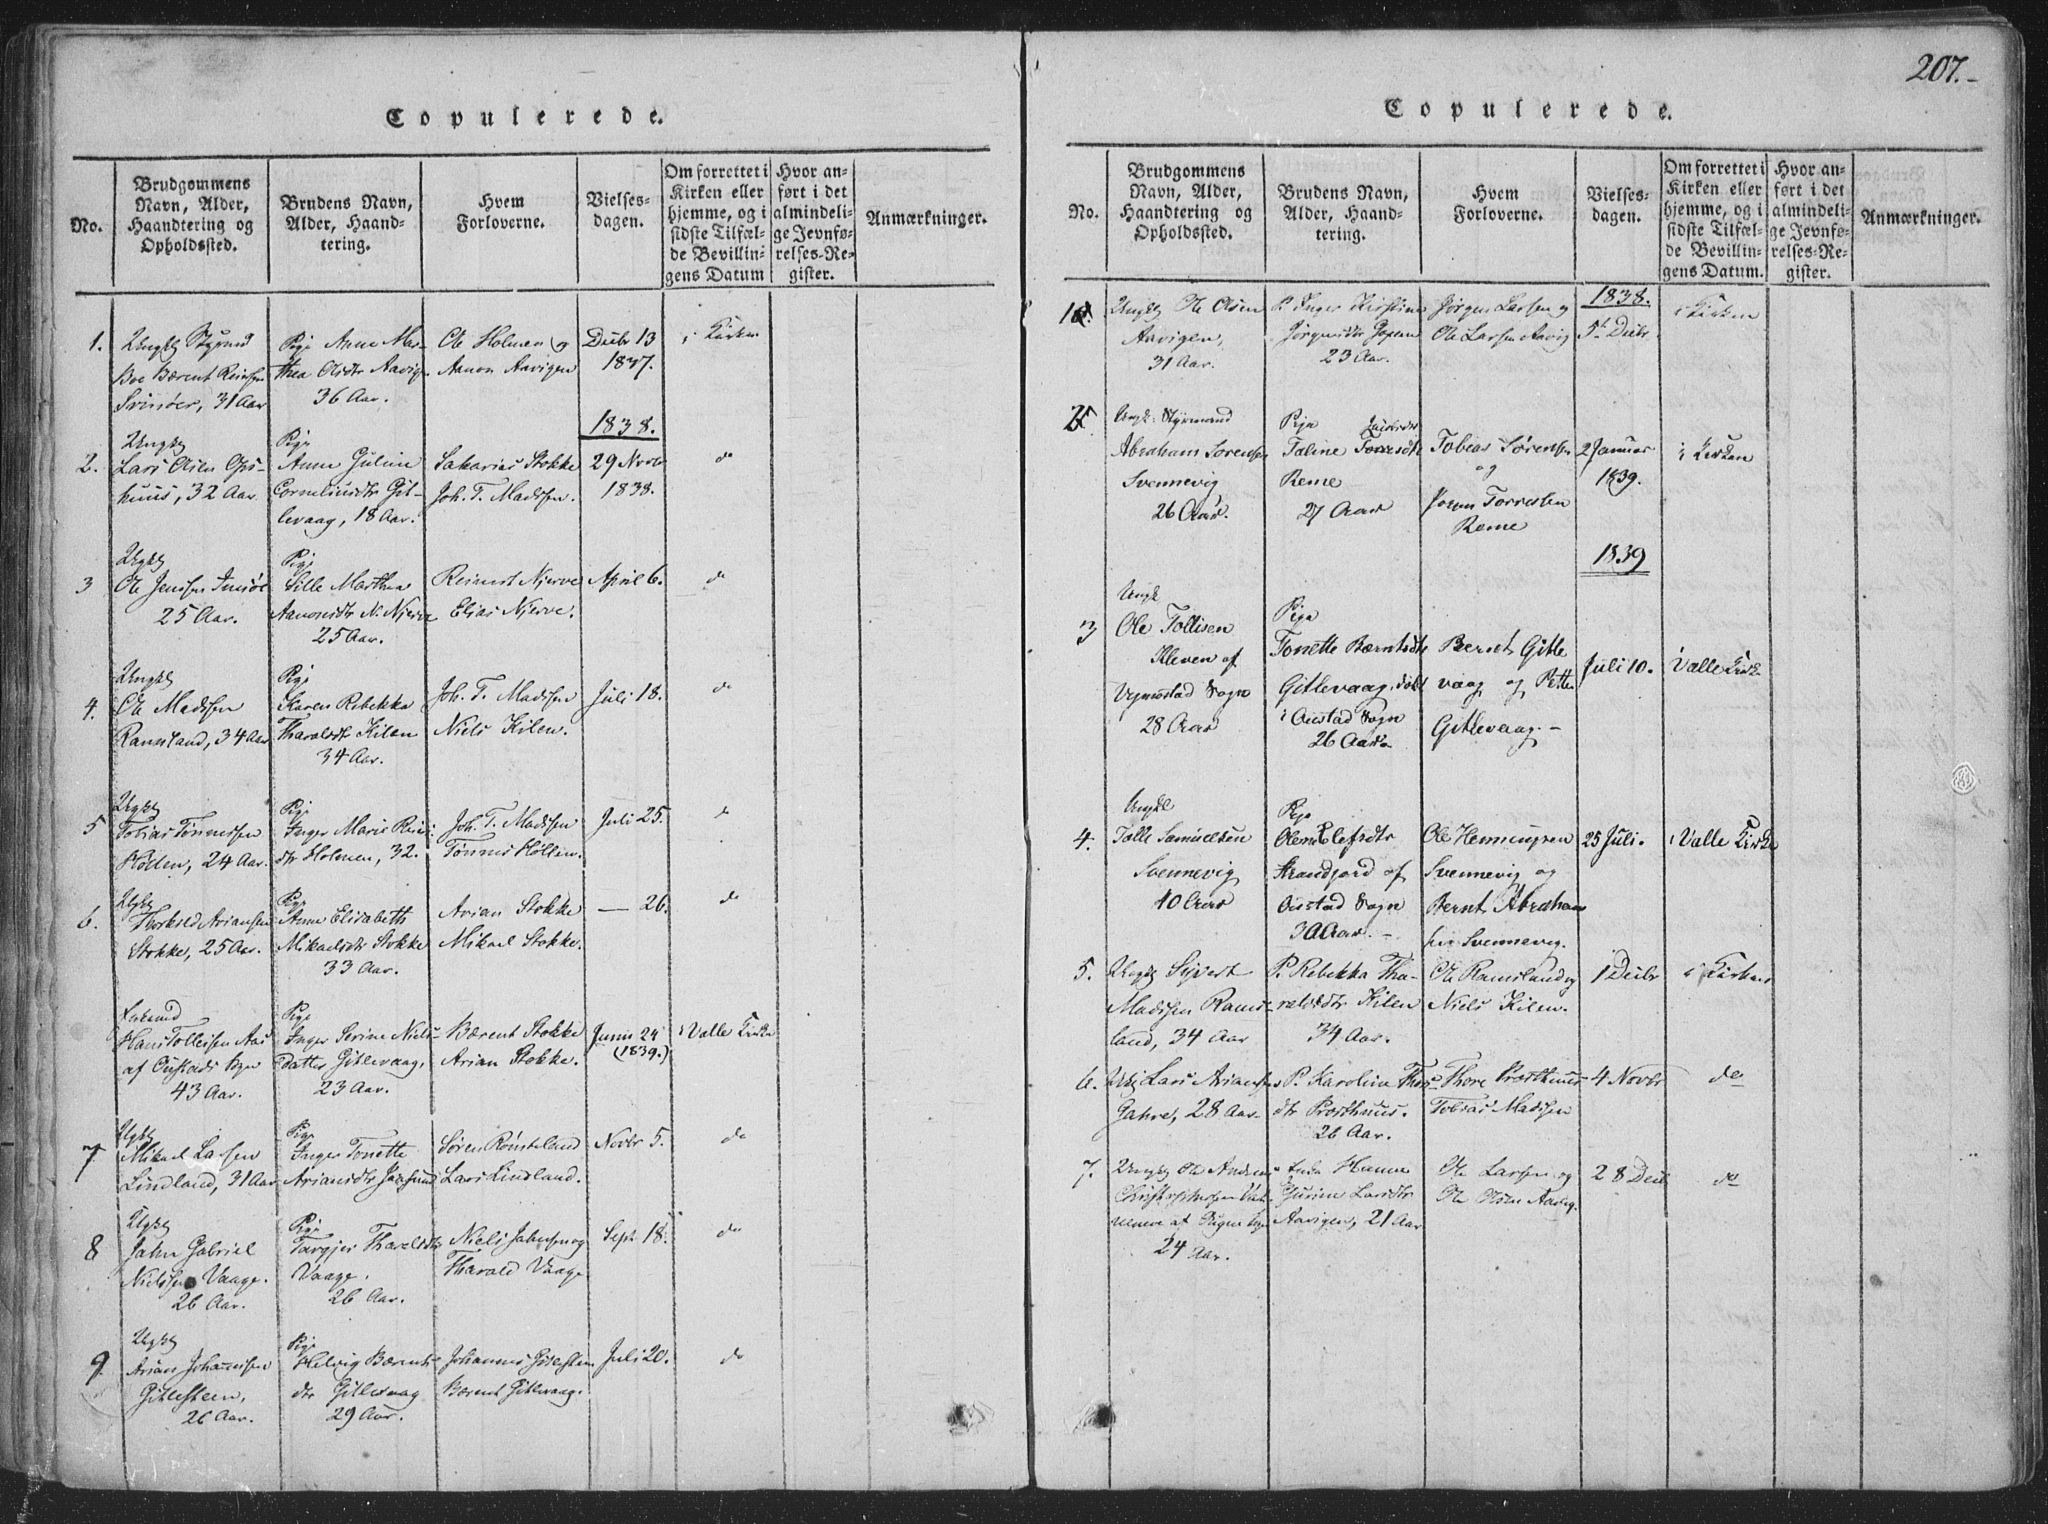 207.-
Copulerede.
No.
Brudgommens Navn, Alder, Haandtering og Opholdssted.
Brudens Navn, Alder, Haandtering.
Hvem Forloverne.
Vielsesdagen.
Om forrettet i Kirken eller hjemme, og i sidste Tilfælde Bevillingens Datum
Hvor anført i det almindelige Jevnførelses-Register.
Anmærkninger.
1.
Ungk Styrmd
Boe Bærent Reinsen
Svinøer, 31 Aar
Pige Anne Mar-
thea Olsdtr Aavig
36 Aar.
Ole Holmen og
Aanon Aavigen
Decbr 13
1837.
i Kirken
1838.
2.
Ungk
Lars Olsen Ops-
huus, 32 Aar
Pige
Anne Guline
Corneliusdtr Git-
levaag, 18 Aar.
Sakarias Stokke
Joh. T. Madssen.
29 Novbr
1838.
do
3
Ungk
Ole Jenssen
25 Aar.
Pige
Sille Marthea
Aanonsdtr N. Njerve
25 Aar.
Reinert Njerve
Elias Njerve.
April 6.
do
4.
Ungk
Ole Madssen
Ramsland, 34 Aar
Pige
Karen Rebekka
Tharaldsdtr Kilen
34 Aar.
Joh. T. Madssen
Niels Kilen.
Juli 18.
do
5
Ungk
Tobias Tønnessen
Hollen, 24 Aar.
Pige
Inger Marie Reins-
dtr Holmen, 32.
Joh. T. Madssen
Tønnes Hollen.
Juli 25.
do
6.
Ungk
Thorkild Ariansen
Stokke, 25 Aar.
Pige
Anne Elisabeth
Mikaelsdtr Stokke
33 Aar.
Arian Stokke
Mikael Stokke.
— 26.
do
Hans Tollefsen Aas
af Oustads Sogn
43 Aar.
Pige
Inger Serine Niels-
Datter Gitlevaag,
23 Aar.
Bærent Stokke
Arian Stokke.
Junii 24
(1839.)
i Valle Kirke
7
Ungk
Mikael Larsen
Lindland, 31 Aar
Pige
Inger Tonette
Ariansdtr
Søren Rønsteland
Lars Lindland.
Novbr 5.
do
8
Ungk
Jahn Gabriel
Nielssen Vaage.
26 Aar.
Pige
Targjer Tharaldsdtr
Vaage.
26 Aar.
Niels Jahnsen og
Tharald Vaage
Sept 18.
do
9.
Ungk
Arian Johannssen
Gitlesteen,
26 Aar.
Pige
Helvig Bærents-
dtr Gitlevaag
29 Aar.
Johannes Gitlesteen
Bærent Gitlevaag.
Juli 20.
do
Copulerede.
No.
Brudgommens Navn, Alder, Haandtering og Opholdssted.
Brudens Navn, Alder, Haandtering.
Hvem Forloverne.
Vielsesdagen.
Om forrettet i Kirken eller hjemme, og i sidste Tilfælde Bevillingens Datum.
Hvor anført i det almindelige Jevnførelses-Register.
Anmærkninger.
1838.
10.
Ungk Ole Olsen
Aavigen,
31 Aar.
P. Inger Kirstine
Jørgensdtr
23 Aar.
Jørgen Larssen og
Ole Larsen Aavig
5te Decbr.
i Kirken
Ungk: Styrmand
Abraham Sørensen
Svennevig
26 Aar.
Pige
Taline Torresdtr
Reme
27 Aar
Tobias Sørensen
og
Torresen
Reme
2 Januar
1839.
i Kirken
1839
3
Ungk
Ole Tollisen
Kleven af
Sogn
28 Aar
Pige
Tonette Berntsdtr
Gitlevaag,
i Oustad Sogn
26 Aar
Bernt Gitle
vaag og Petter
Gitlevaag. –
Juli 10.
i Valle Kirke
4.
Ungk
Tolle Samuelsen
Svennevig
40 Aar
Pige
Olene Elefsdtr
Strandjord af
Oustad Sogn
30 Aar. –
Ole Henricksen
Svennevig og
Bernt Abraham
sen Svennevig.
25 Juli.
i Valle Kirke
5.
Ungk Sivert
Madssen Rams-
land, 34 Aar
P. Rebekka Tha-
raldsdtr Kilen
34 Aar.
Ole Ramsland og
Niels Kilen.
1 Decbr
i Kirken
6.
Ungk Lars Arianssen
Gahre, 28 Aar.
P. Karoline Thors-
dtr Prosthuus.
26 Aar.
Thore Prosthuus
Tobias Madssen
4 Novbr
do
7.
Ungk Ole Andreas
Christophersen
24 Aar.
Enke Hanne
Gurine Larsdtr
Aavigen, 21 Aar
Ole Larssen og
Ole Olsen Aavig.
28 Decbr
do